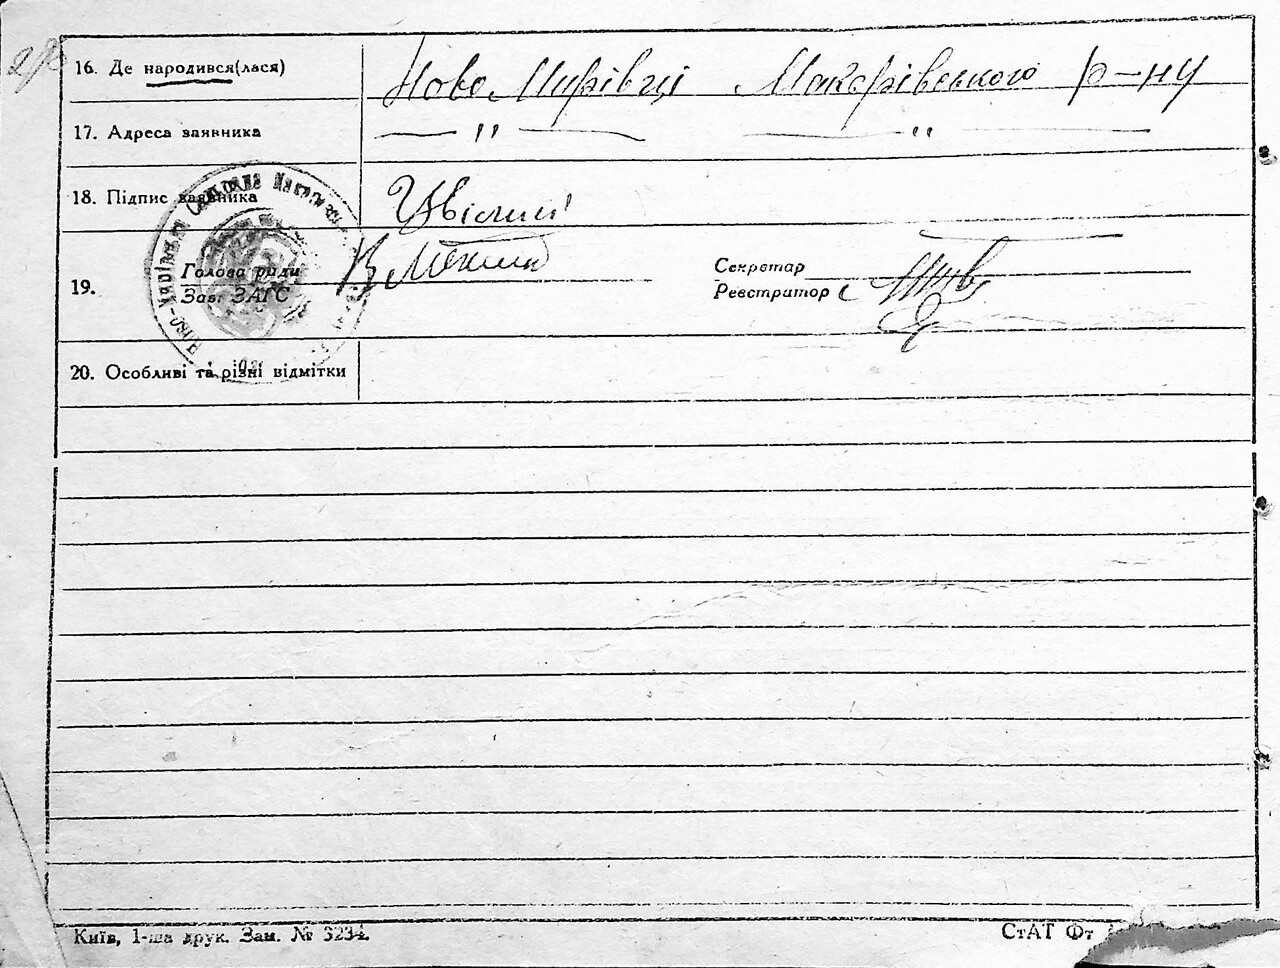 16. Де народився(лася) Ново Мирівці Макарівського р-ну
17. Адреса заявника — " — — " —
18. Підпис заявника
19. Голова ради Секретар
Зав. ЗАГС Реєстратор
20. Особливі та різні відмітки
Київ, 1-ша друк. Зам. № 3234.
СтАТ Фт